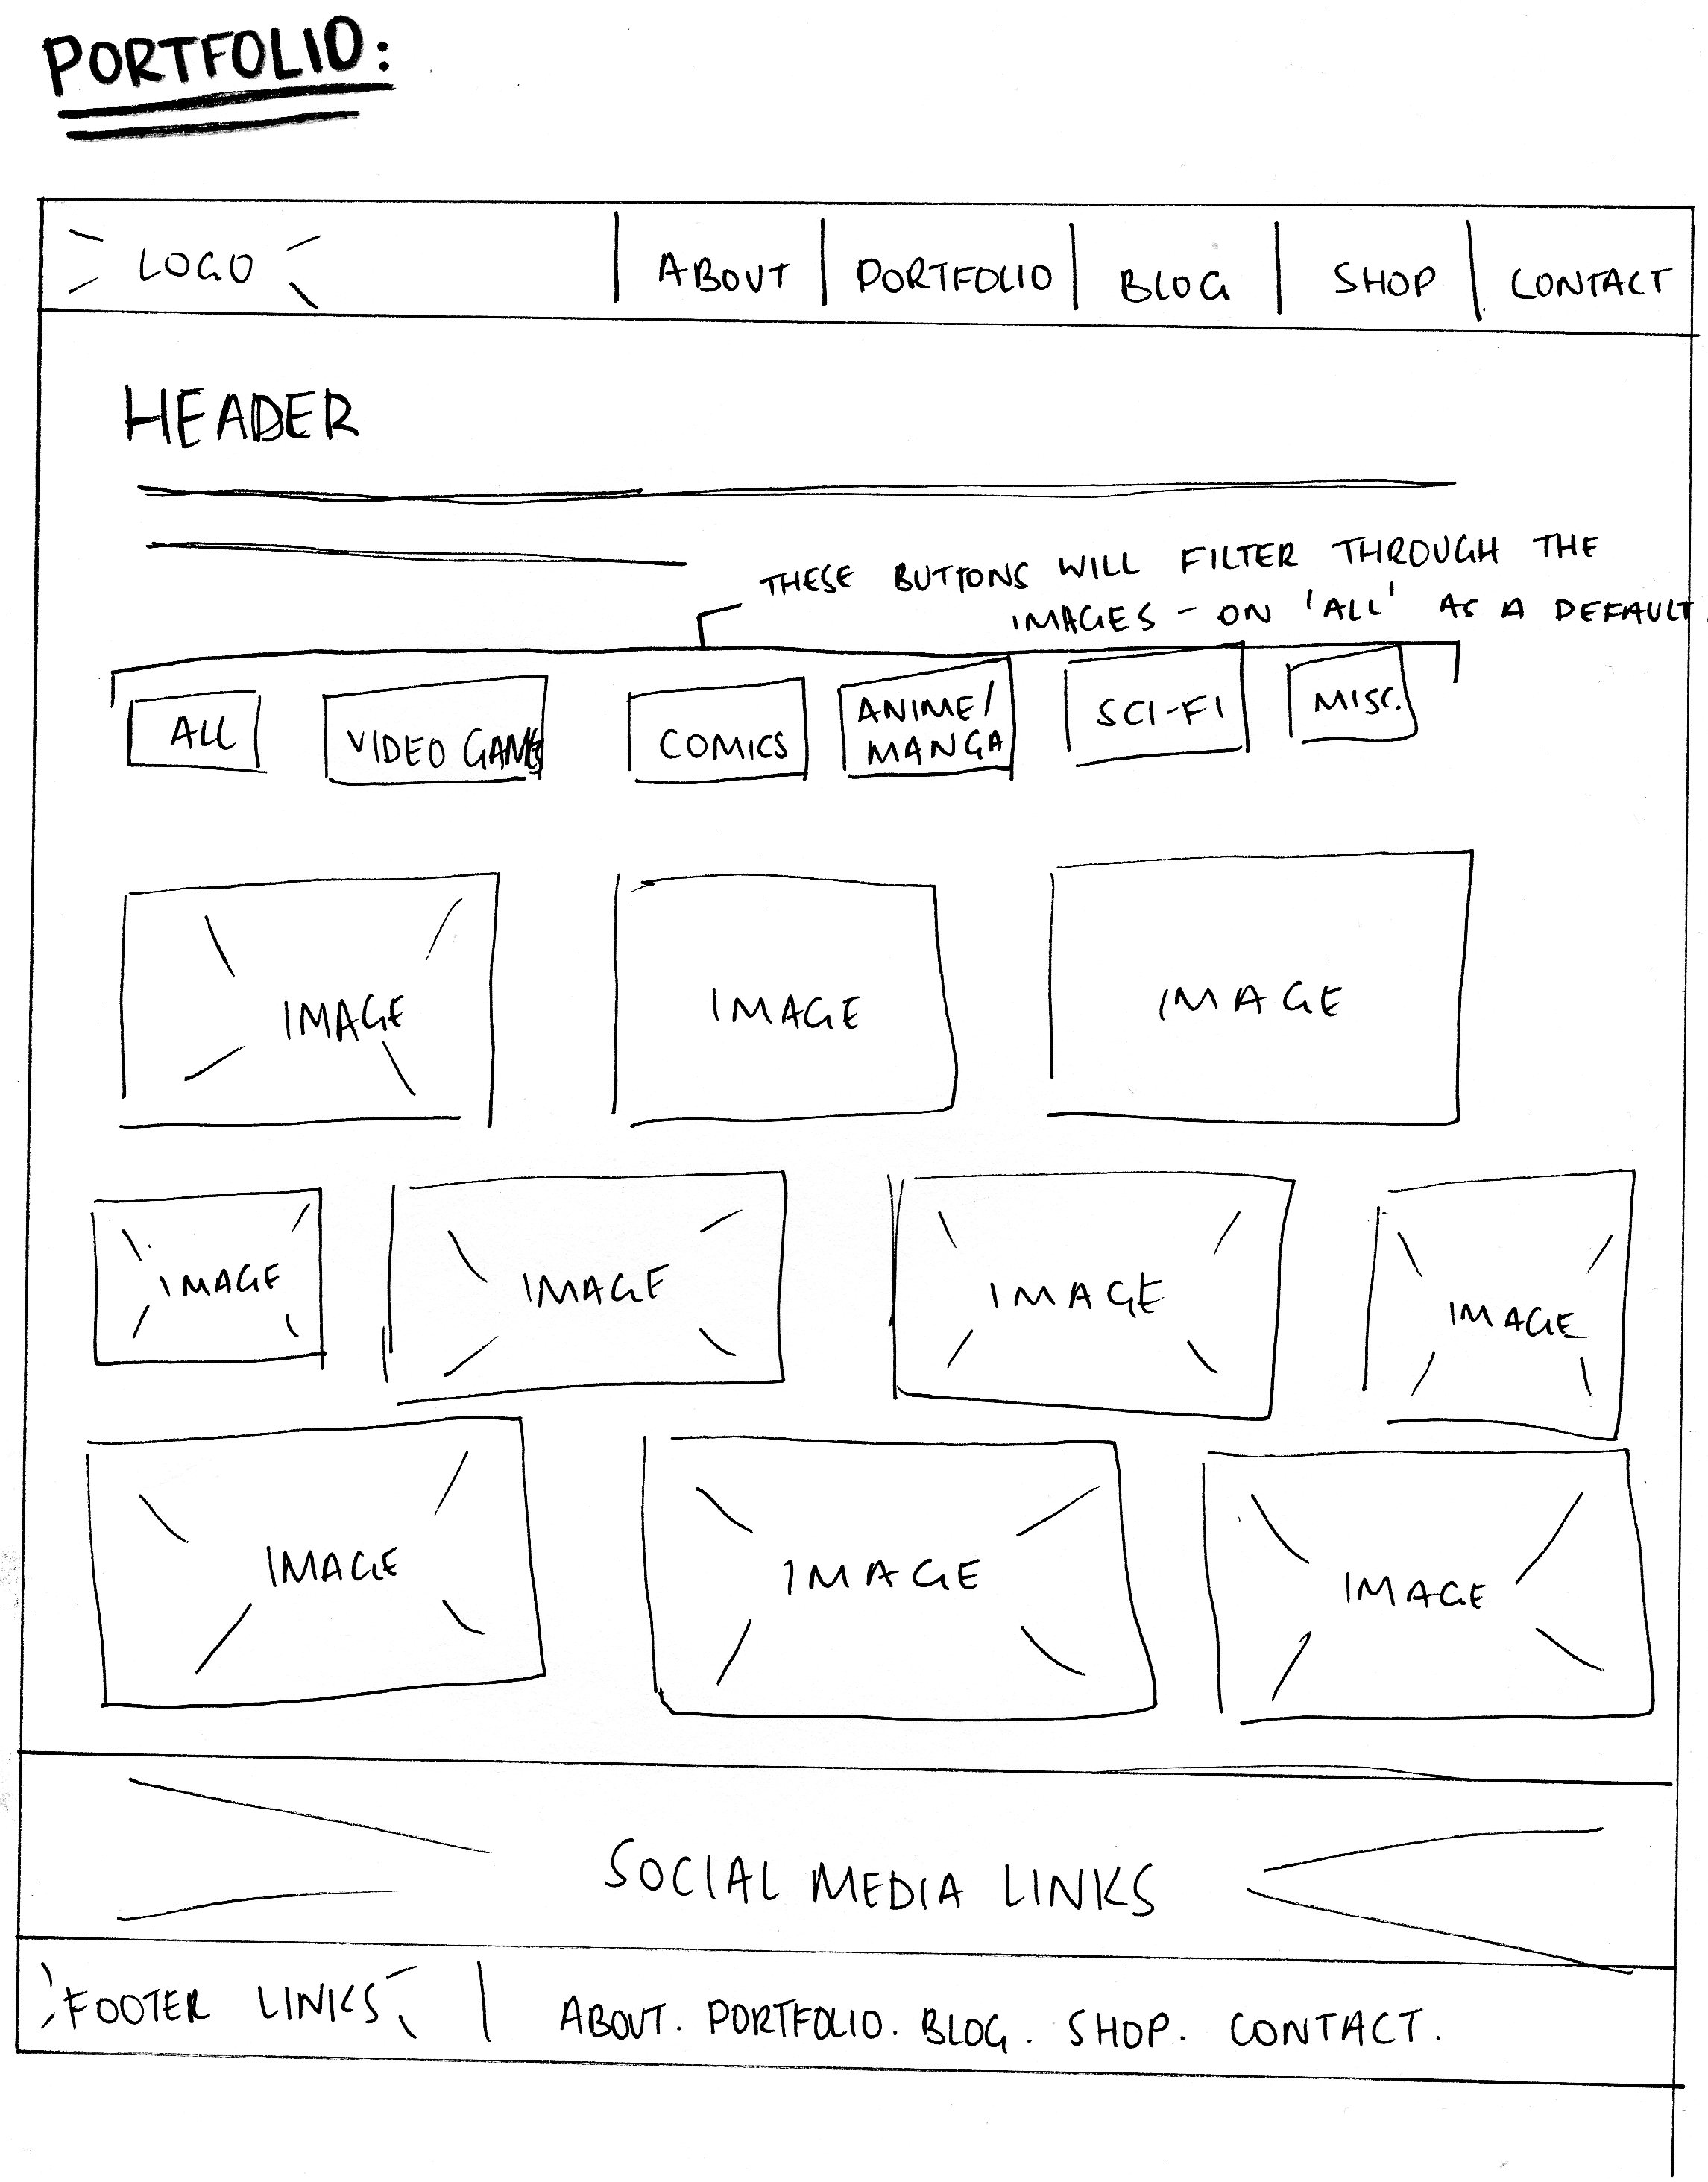 PORTFOLIO:
LOGO ABOUT PORTFOLIO BLOG SHOP CONTACT
HEADER
THESE BUTTONS WILL FILTER THROUGH THE
IMAGES - ON 'ALL' AS A DEFAULT.
ALL VIDEO GAMES COMICS ANIME/ MANGA SCI-FI MISC.
IMAGE IMAGE IMAGE
IMAGE IMAGE IMAGE IMAGE
IMAGE IMAGE IMAGE
SOCIAL MEDIA LINKS
FOOTER LINKS | ABOUT. PORTFOLIO. BLOG. SHOP. CONTACT.